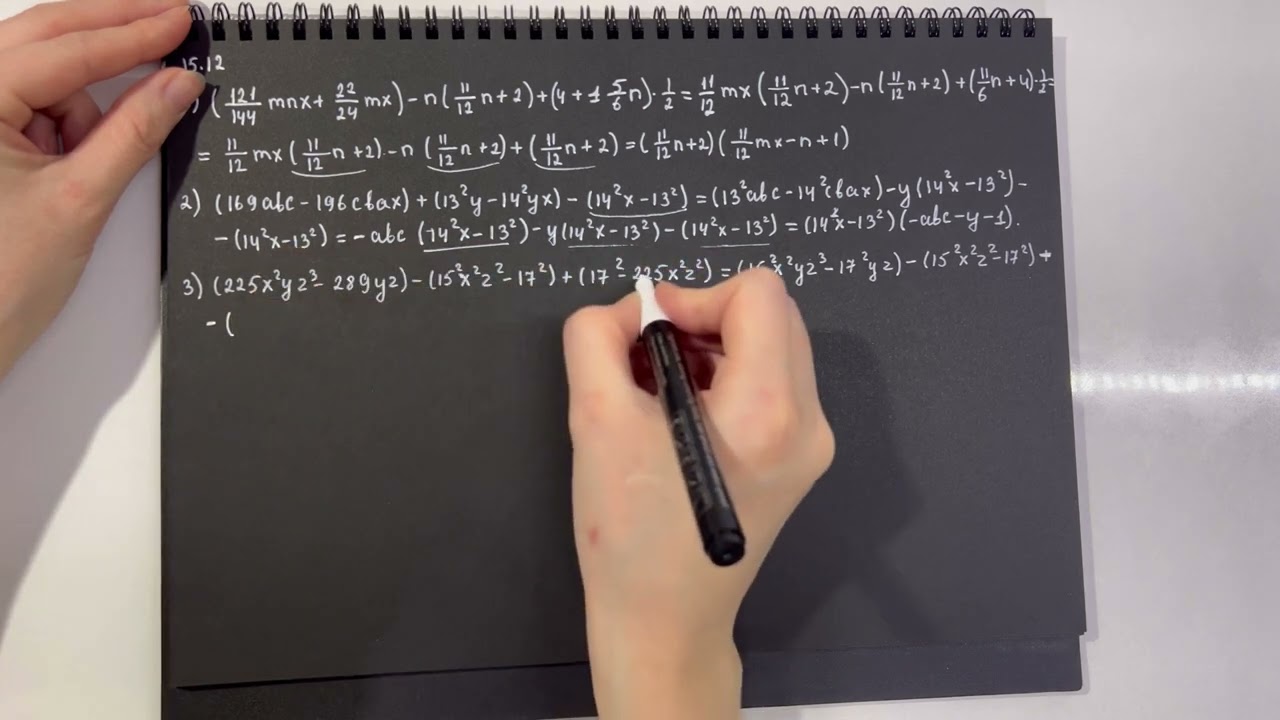 15.12
) (121/144 mnx + 22/24 mx) - n(11/12 n + 2) + (4 + 1 5/6 n) · 1/2 = 11/12 mx (11/12 n + 2) - n (11/12 n + 2) + (11/6 n + 4) · 1/2 =
= 11/12 mx (11/12 n + 2) - n (11/12 n + 2) + (11/12 n + 2) = (11/12 n + 2) (11/12 mx - n + 1)
2) (169abc - 196cbax) + (13²y - 14²yx) - (14²x - 13²) = (13²abc - 14²cbax) - y(14²x - 13²) -
- (14²x - 13²) = - abc (14²x - 13²) - y(14²x - 13²) - (14²x - 13²) = (14²x - 13²) (-abc - y - 1).
3) (225x²yz³ - 289yz) - (15²x²z² - 17²) + (17² - 225x²z²) = (15²x²yz³ - 17²yz) - (15²x²z² - 17²) +
- (